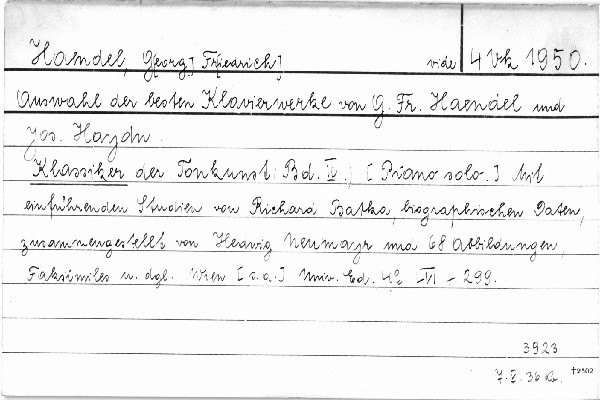 Haendel, G[eorg] Fr[iedrich] vide 4 Vk 1950.
Auswahl der besten Klavierwerke von G. Fr. Haendel und
Jos. Haydn.
Klassiker der Tonkunst Bd. IV., [Piano solo.] Mit
einführenden Studien von Richard Batka, biographischen Daten,
zusammengestellt von Hedwig Neumayr und 68 Abbildungen,
Faksimiles u. dgl. Wien [s.a.] Univ. Ed. 4° IVI - 299.
3923
7. X. 36 Kr. †2902